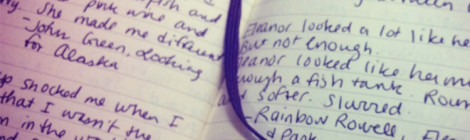 pink wine and
y. She made me different
-John Green, Looking
for Alaska
p shocked me when I
that I wasn't the
in the
Eleanor looked a lot like he
But not enough.
eanor looked like her m
hrough a fish tank. Roun
and softer. Slurred.
-Rainbow Rowell,
& Park